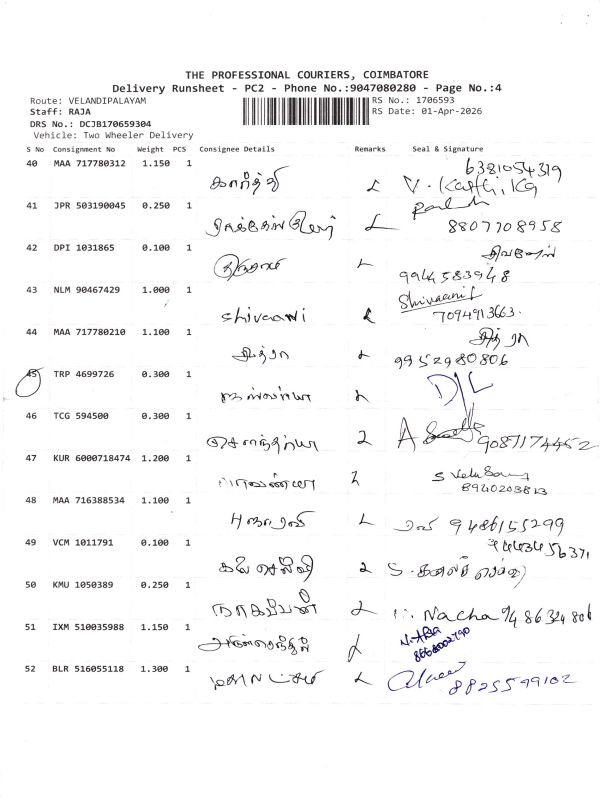 THE PROFESSIONAL COURIERS, COIMBATORE
Delivery Runsheet - PC2 - Phone No.:9047080280 - Page No.:4
Route: VELANDIPALAYAM RS No.: 1706593
Staff: RAJA RS Date: 01-Apr-2026
DRS No.: DCJB170659304
Vehicle: Two Wheeler Delivery
S No Consignment No Weight PCS Consignee Details Remarks Seal & Signature
40 MAA 717780312 1.150 1 6381054319
கார்த்தி L V. Karthika
41 JPR 503190045 0.250 1
L 8807708958
42 DPI 1031865 0.100 1
L 9944583948
43 NLM 90467429 1.000 1 Shivaani
Shivaani L 7094913663.
44 MAA 717780210 1.100 1 சித்ரா
சித்ரா L 9952980806
45 TRP 4699726 0.300 1 D/L
L
46 TCG 594500 0.300 1
சௌந்தர்யா L A 9087174452
47 KUR 6000718474 1.200 1
லாவண்யா L 8940203813
48 MAA 716388534 1.100 1
L ரவி 9486155299
49 VCM 1011791 0.100 1 9443456371
கலை செல்வி L S. கலைச் செல்வி
50 KMU 1050389 0.250 1
நாகப்பன் L Nacha 9486324806
51 IXM 510035988 1.150 1
அருள்செந்தில் L
52 BLR 516055118 1.300 1
L 8825599102